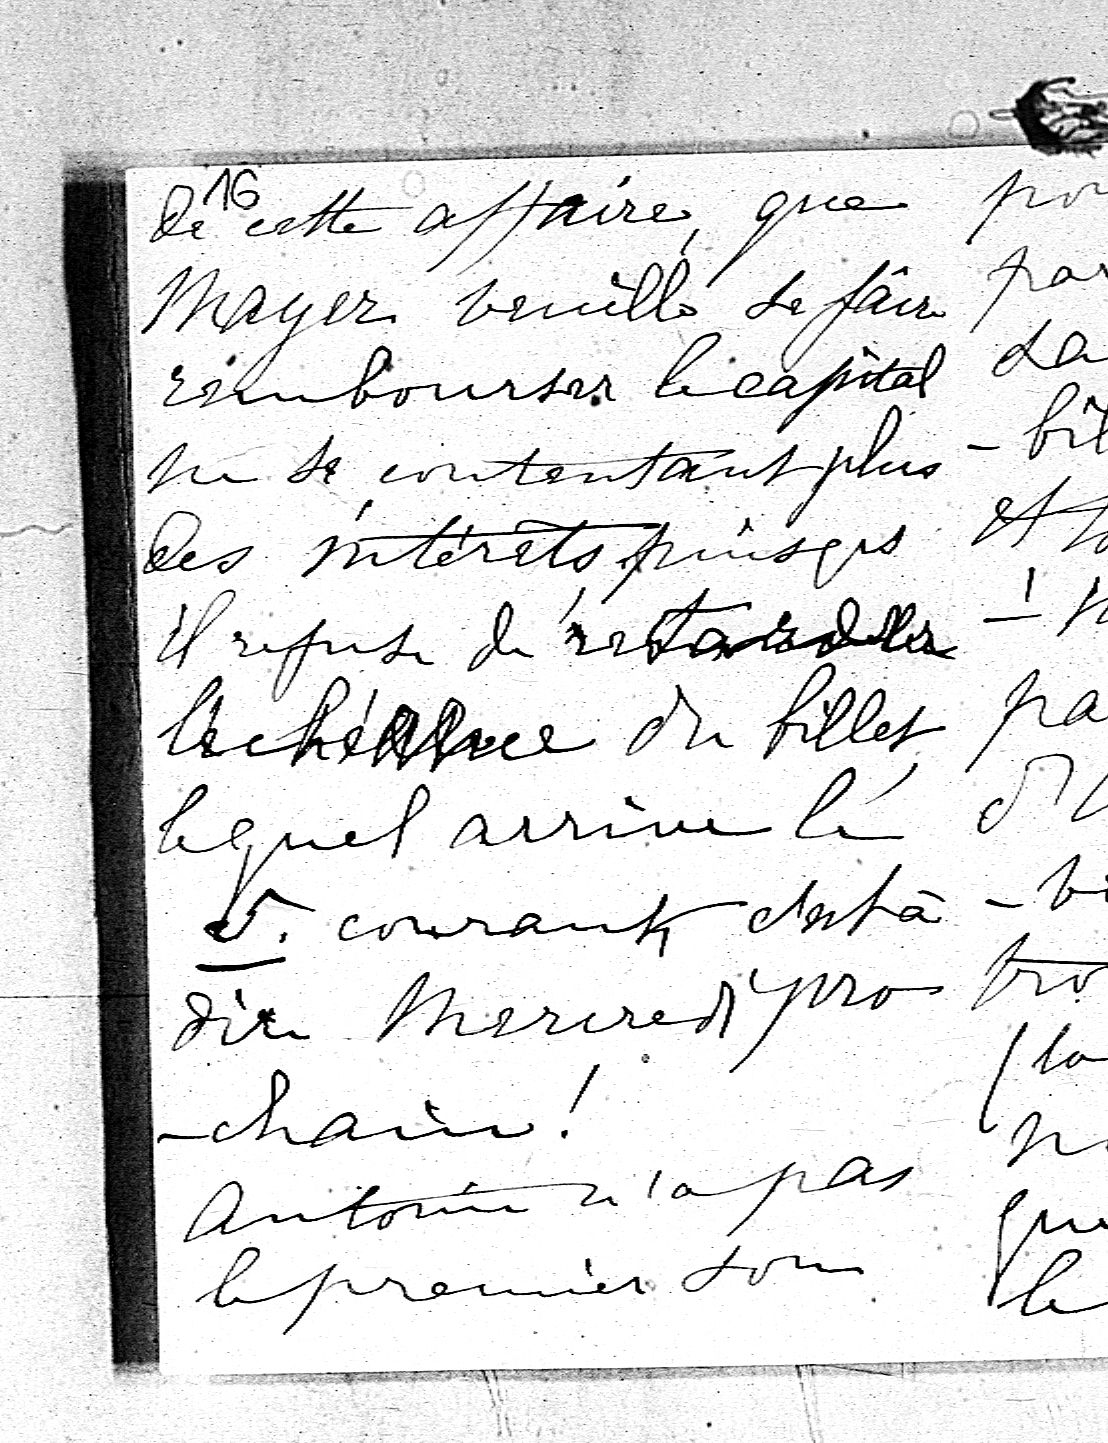 16
de cette affaire, que
Mayer veuille se faire
rembourser le capital
ne se contentant plus
des intérêts puisque
il refuse de retarder
l'échéance du billet
lequel arrive le
5. courant c'est à
dire Mercredi pro
-chain!
Antonin n'a pas
le premier sou
pou
par
sa
- bil
et
-
pa
d'
- vi
tro
(la
n
que
le